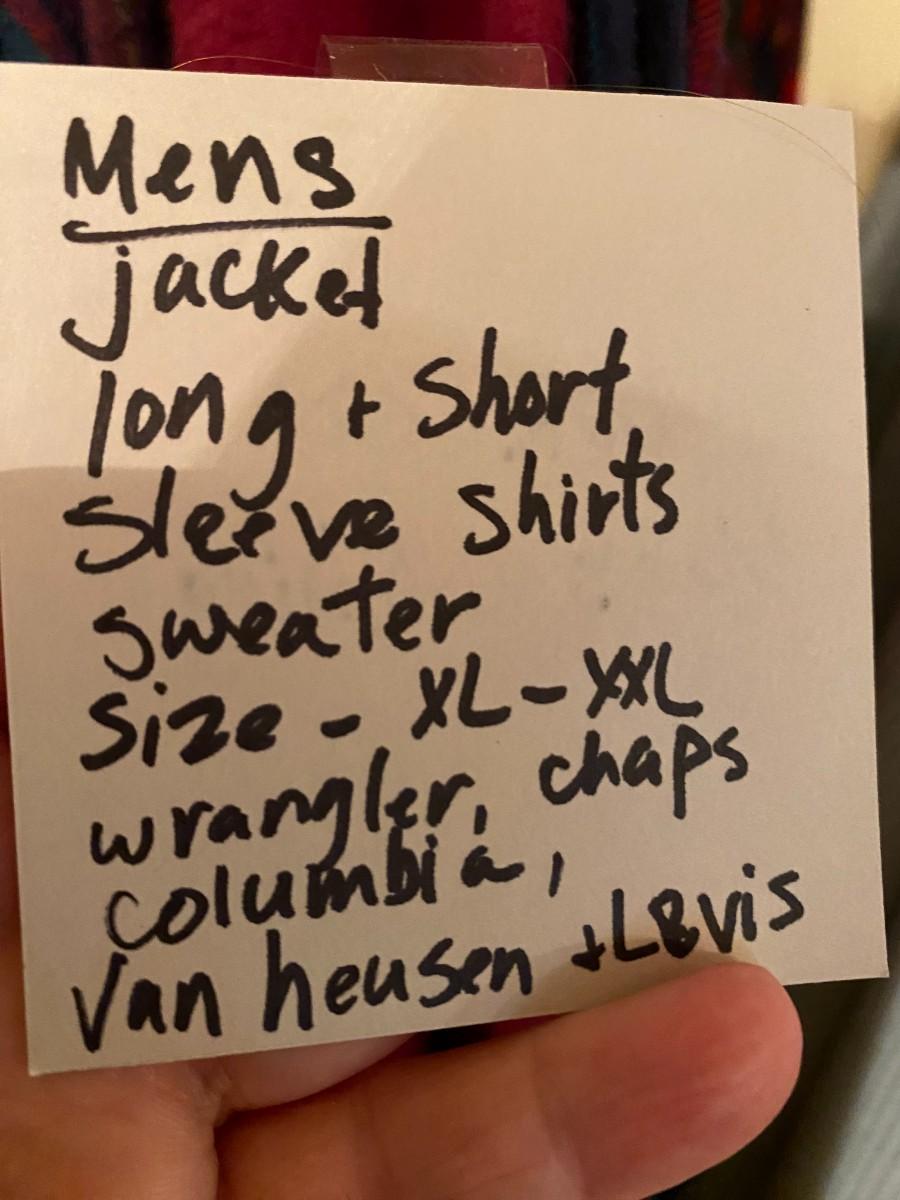 Mens
jacket
long + short
sleeve shirts
sweater
size - XL - XXL
wrangler, chaps
columbia,
Van heusen + Levis